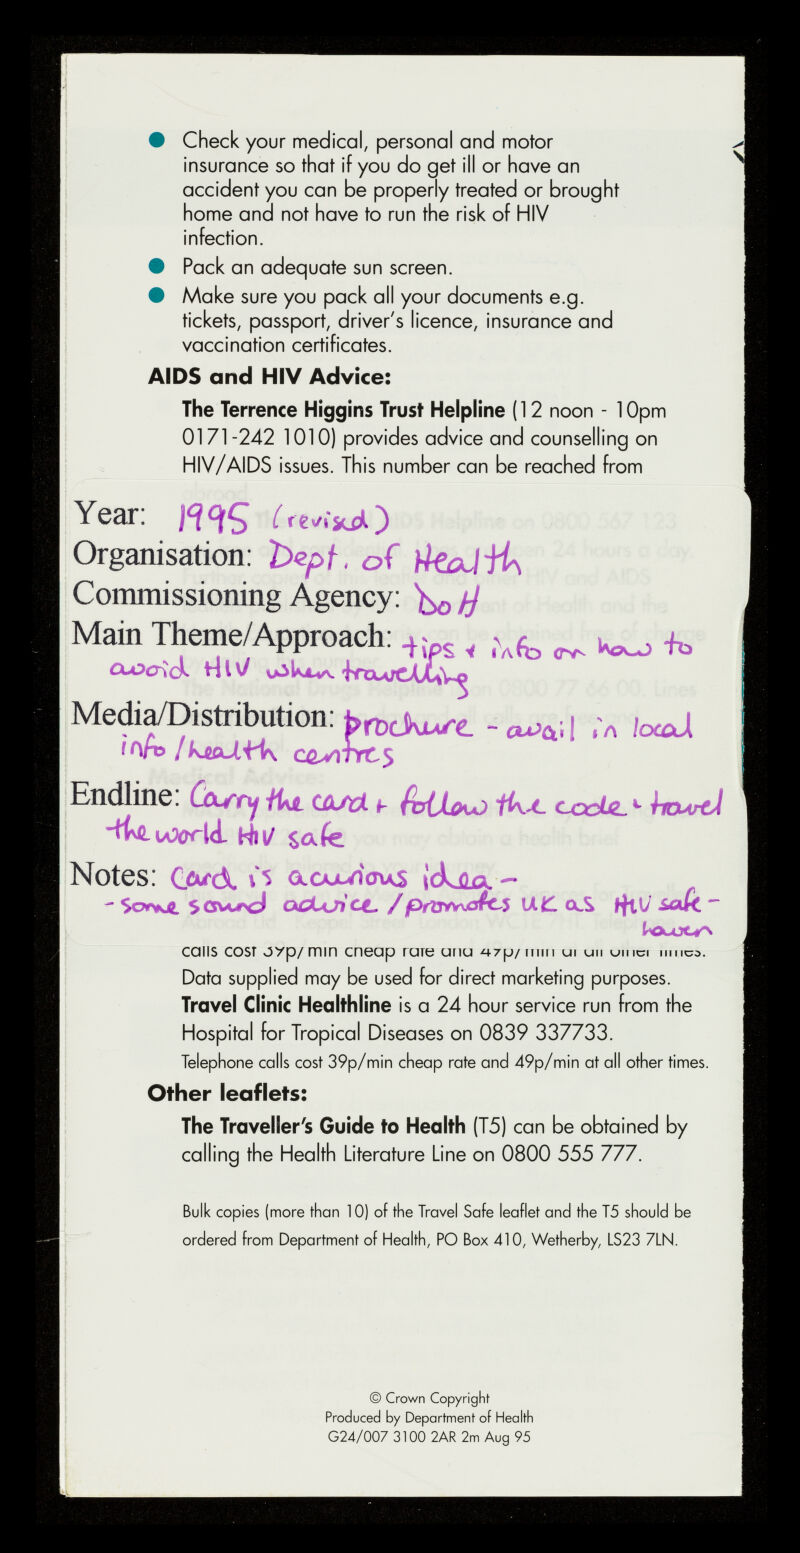 ● Check your medical, personal and motor
insurance so that if you do get ill or have an
accident you can be properly treated or brought
home and not have to run the risk of HIV
infection.
● Pack an adequate sun screen.
● Make sure you pack all your documents e.g.
tickets, passport, driver's licence, insurance and
vaccination certificates.
AIDS and HIV Advice:
The Terrence Higgins Trust Helpline (12 noon - 10pm
0171-242 1010) provides advice and counselling on
HIV/AIDS issues. This number can be reached from
Year: 1995 (revised)
Organisation: Dept. of Health
Commissioning Agency: DoH
Main Theme/Approach: tips + info on how to
avoid HIV when travelling
Media/Distribution: brochure - avail in local
info/health centres
Endline: Carry the card + follow the code + travel
the world HIV safe
Notes: Card is a curious idea -
- some sound advice / promotes UK as HIV safe -
haven
calls cost 39p/min cheap rate and 49p/min at all other times.
Data supplied may be used for direct marketing purposes.
Travel Clinic Healthline is a 24 hour service run from the
Hospital for Tropical Diseases on 0839 337733.
Telephone calls cost 39p/min cheap rate and 49p/min at all other times.
Other leaflets:
The Traveller's Guide to Health (T5) can be obtained by
calling the Health Literature Line on 0800 555 777.
Bulk copies (more than 10) of the Travel Safe leaflet and the T5 should be
ordered from Department of Health, PO Box 410, Wetherby, LS23 7LN.
© Crown Copyright
Produced by Department of Health
G24/007 3100 2AR 2m Aug 95